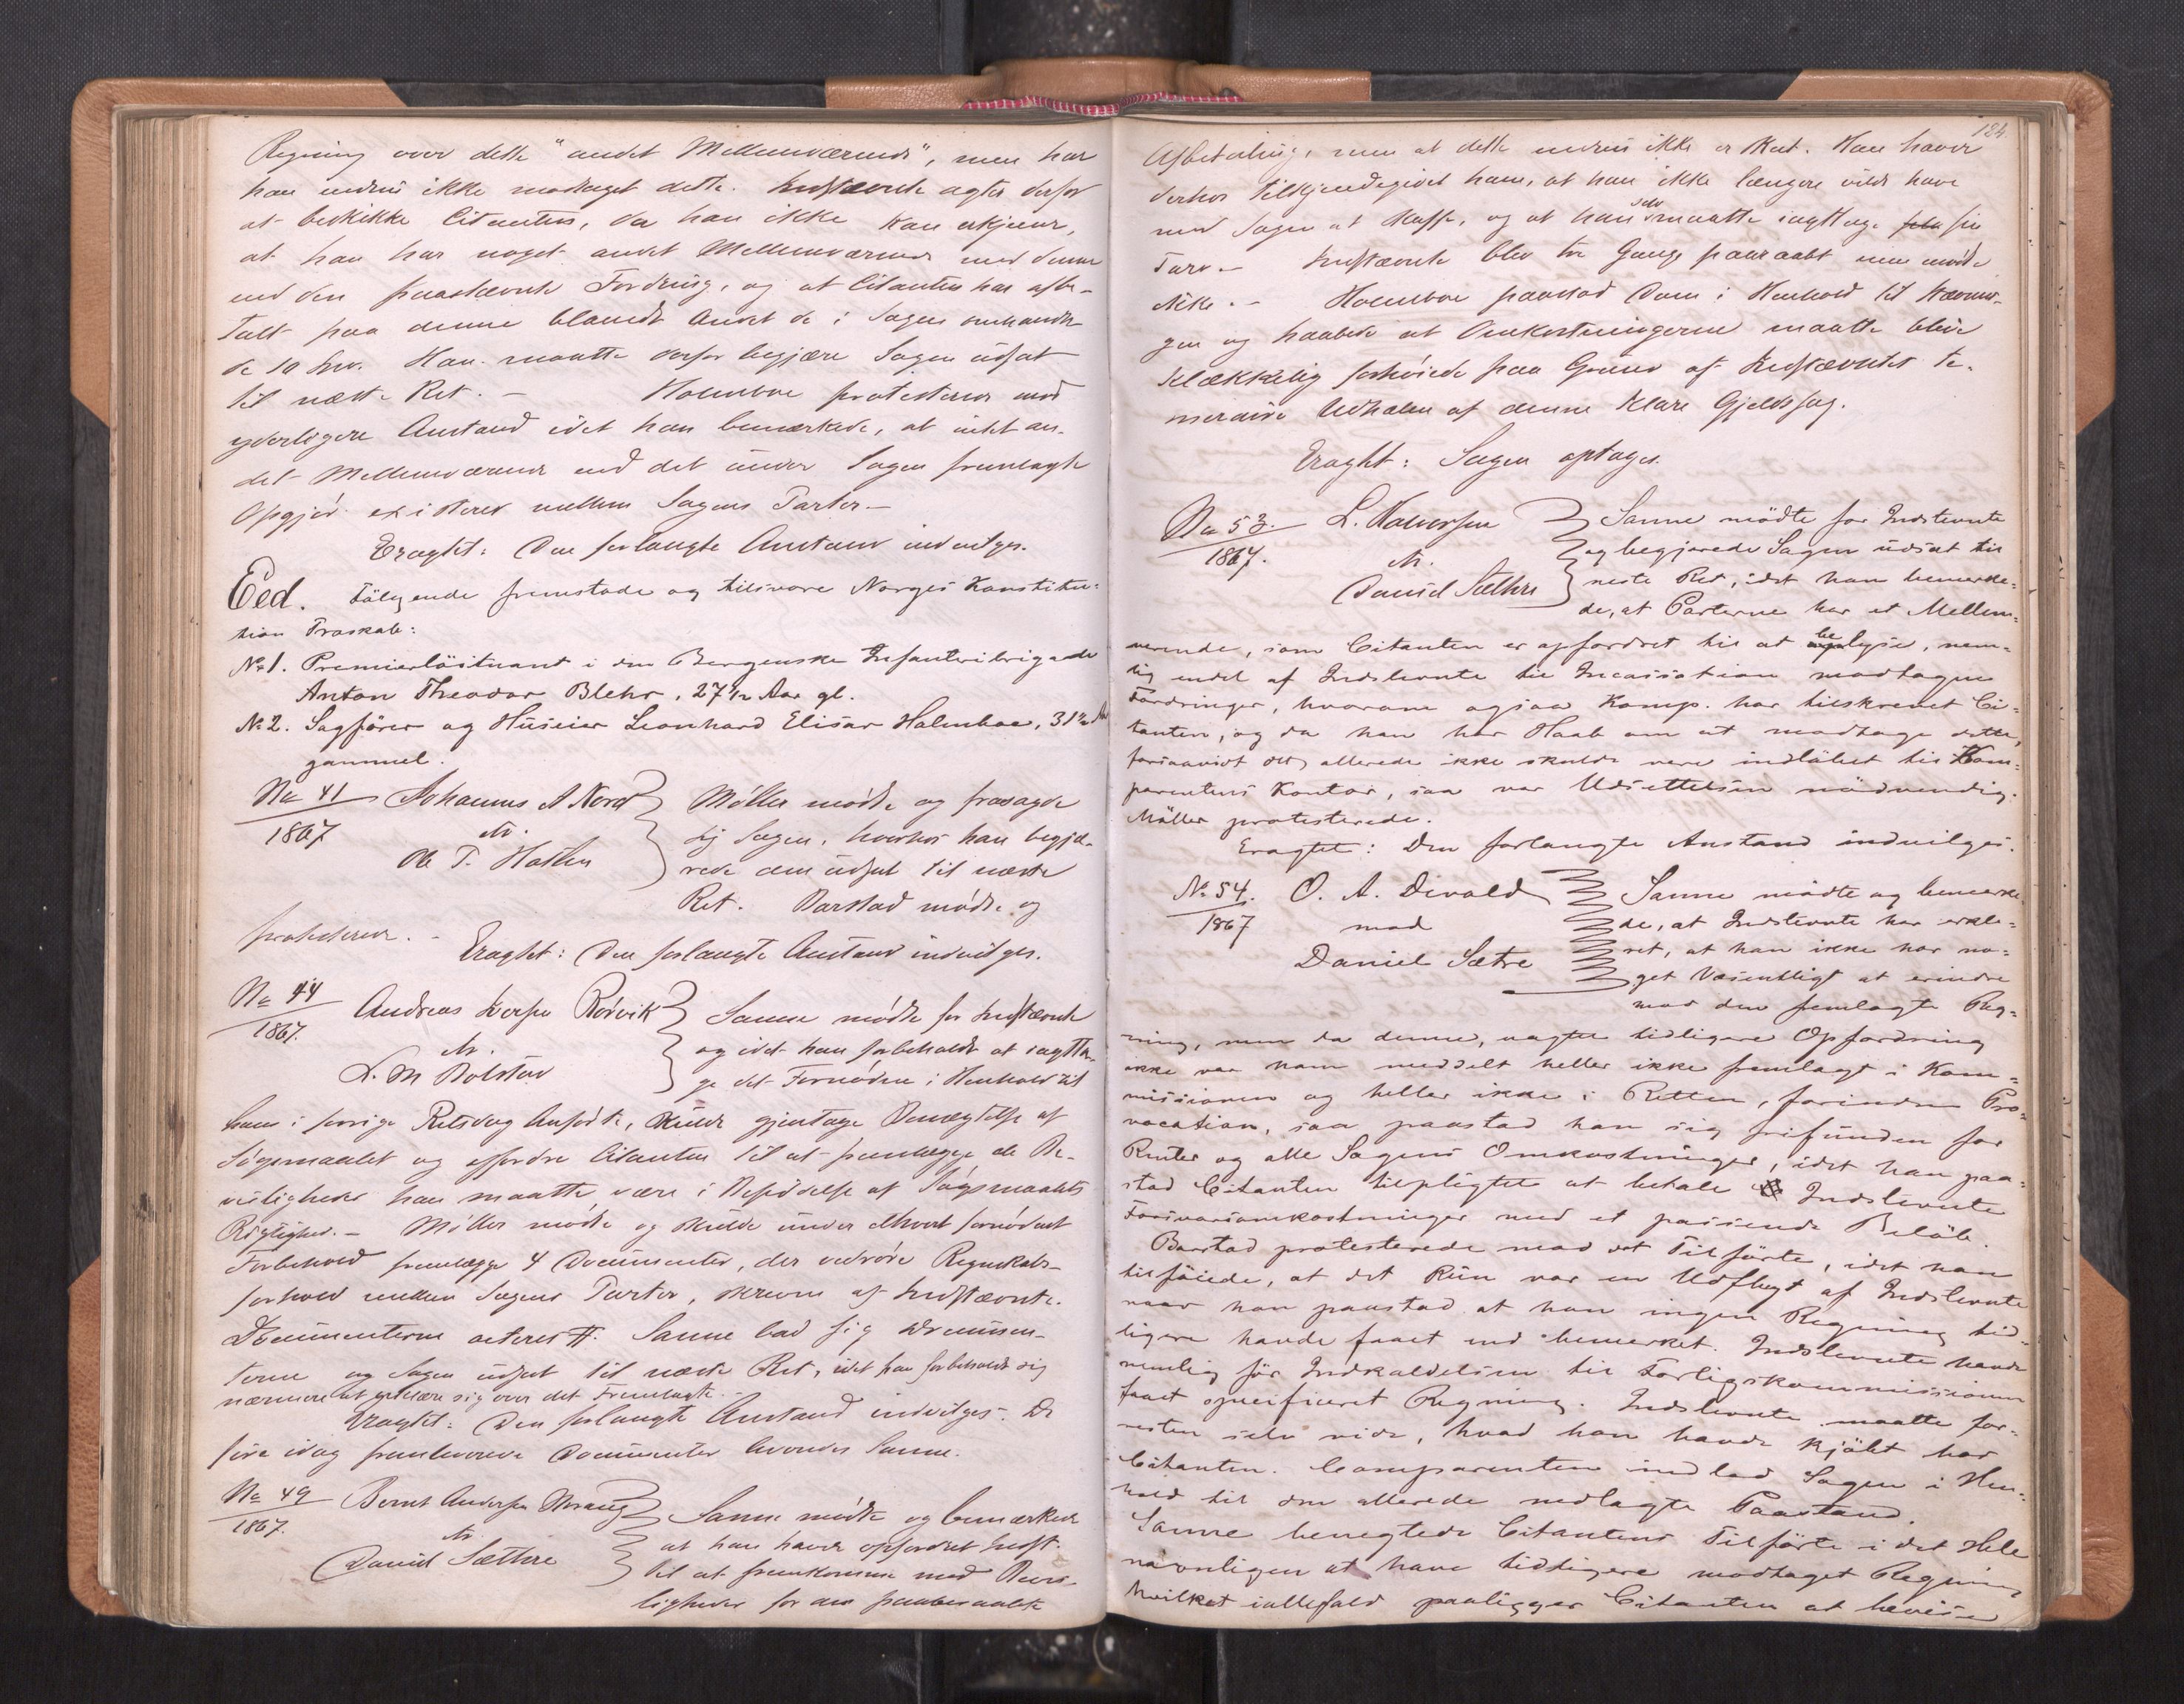 Regning over dette "andet Mellemværende", men har
han endnu ikke modtaget dette. Indstævnte agter derfor
at beskikke Citanten, da han ikke kan erkjende,
at han har noget andet Mellemværende med denne
end den paastævnte Fordring, og at Citanten har afbe-
talt paa denne blandt Andet de i Sagen omhandle-
de 10 Spd. Han maatte derfor begjære Sagen udsat
til næste Ret. — Holmboe protesterede mod
yderligere Anstand idet han bemærkede, at intet an-
det Mellemværende end det under Sagen fremlagte
Opgjør existerer mellem Sagens Parter. —
Eragtet: Den forlangte Anstand indvilges.
Eed. Fölgende fremstode og tilsvore Norges Konstitu-
tion Troskab:
No 1. Premierlöitnant i den Bergenske Infanteribrigade
Anton Theodor Blehr, 27 1/2 Aar gl.
No 2. Sagförer og Huseier Leonhard Elisar Holmboe, 31 1/2 Aar
gammel.
No 41 Johannes A Nord Møller mødte og frasagde
1867 ctr. sig Sagen, hvorhos han begjæ-
Ole T. Hatlen rede den udsat til næste
Ret. Barstad mødte og
protesterede. —
Eragtet: Den forlangte Anstand indvilges.
No 44 Andreas Rørvik Sanne mødte for Indstævnte
1867. ctr. og idet han forbeholdt at iagtta-
L. M Bolstad ge det Fornødne i Henhold til
hans i forrige Retsdag Anførte, skulde gjentage Benægtelse af
Søgsmaalet og opfordre Citanten til at fremlægge de Be-
visligheder han maatte være i Besiddelse af Søgsmaalets
Rigtighed. — Møller mødte og skulde under ethvert fornødent
Forbehold fremlægge 4 Documenter, der vedrøre Regnskabs-
forhold mellem Sagens Parter, skrevne af Indstævnte.
Documenterne acteres #. Sanne bad sig Documen-
terne og Sagen udsat til næste Ret, idet han forbeholdt sig
nærmere at erklære sig over det Fremlagte. —
Eragtet: Den forlangte Anstand indvilges. De
fire idag fremleverede Documenter leveredes Sanne.
No 49 Bernt Andersen Sanne mødte og bemærkede
1867. ctr. at han havde opfordret Indst.
David Sæthre til at fremkomme med Bevis-
ligheder for den paaberaabte
184
Afbetaling, men at dette endnu ikke er skeet. Han havde
derhos tilkjendegivet ham, at han ikke længere vilde have
med Sagen at skaffe, og at han selv maatte iagttage sin
Tarv. — Indstævnte blev tre Gange paaraabt men mødte
ikke. — Holmboe paastod Dom i Henhold til Stævnin-
gen og haabede at Omkostningerne maatte blive
klækkelig forhöiede paa Grund af Indstævntes te-
meraire Udhalen af denne klare Gjeldssag.
Eragtet: Sagen optages.
No 53. L. Halversen Sanne mödte for Indstevnte
1867. ctr. og begjærede Sagen udsat til
David Sæthre neste Ret, idet han bemerke-
de, at Parterne har et Mellem-
verende, som Citanten er opfordret til at belyse, nem-
lig endel af Indstevnte til Incassation modtagne
Fordringer, hvorom ogsaa Komp. har tilskrevet Ci-
tanten, og da han har Haab om at modtage dette,
forsaavidt det allerede ikke skulde vere indløbet til Kom-
parentens Kontor, saa var Udsettelsen nödvendig.
Möller protesterede.
Eragtet: Den forlangte Anstand indvilges.
No 54. O. A. Devold Sanne mödte og bemerke
1867 mod de, at Indstevnte har erkle-
Daniel Sætre ret, at han ikke har no-
get Væsentligt at erindre
mod den fremlagte Reg-
ning, men da denne, uagtet tidligere Opfordring
ikke var ham meddelt heller ikke fremlagt i Kom-
missionen og heller ikke i Retten, forinden Pro-
vocation, saa paastod han sig frifunden for
Renter og alle Sagens Omkostninger, idet han paa-
stod Citanten tilpligtet at betale Indstevnte
Forsvarsomkostninger med et passende Belöb.
Barstad protesterede mod det Tilförte, idet han
tilföiede, at det kun var en Udflugt af Indstevnte
naar han paastod at han ingen Regning tid-
ligere havde faaet end bemerket. Indstevnte havde
nemlig för Indkaldelsen til Forligskommissionen
faaet specificeret Regning. Indstevnte maatte for-
resten selv vide, hvad han havde kjöbt hos
Citanten. Comparenten indlod Sagen i Hen-
hold til den allerede nedlagte Paastand.
Sanne benegtede Citantens Tilförte i det Hele
navnligen at have tidligere modtaget Regning
hvilket iallefald paaligger Citanten at bevise